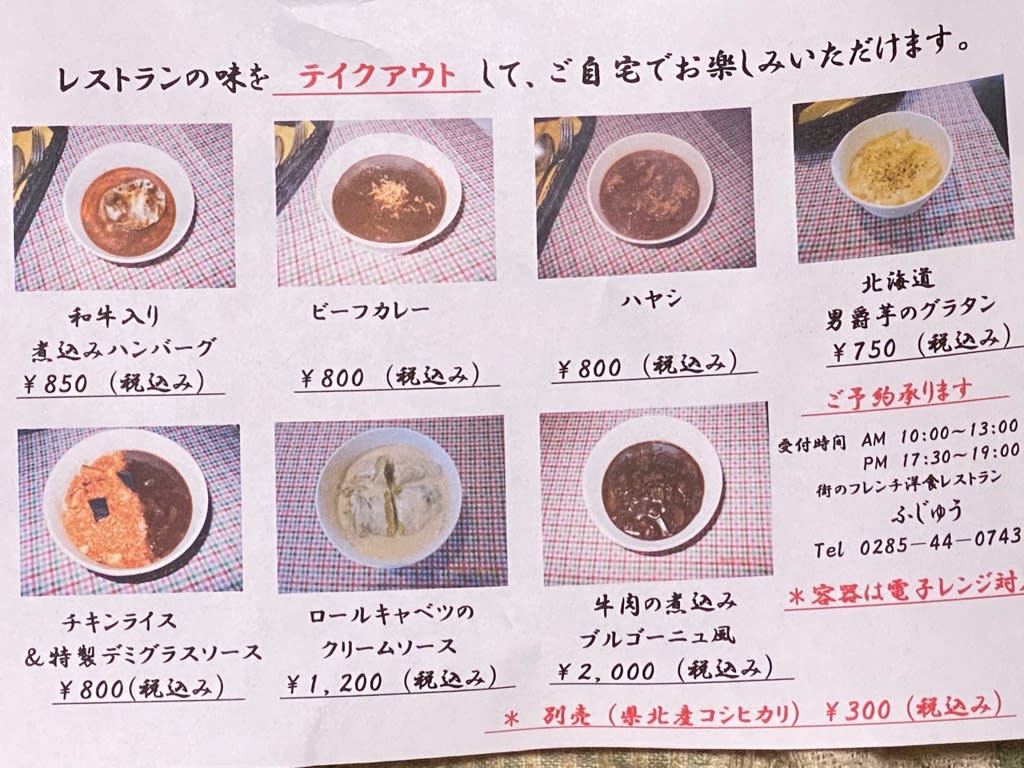 レストランの味を テイクアウト して、ご自宅でお楽しみいただけます。
和牛入り
煮込みハンバーグ
￥850（税込み）
ビーフカレー
￥800（税込み）
ハヤシ
￥800（税込み）
北海道
男爵芋のグラタン
￥750（税込み）
チキンライス
＆特製デミグラスソース
￥800(税込み)
ロールキャベツの
クリームソース
￥1,200（税込み）
牛肉の煮込み
ブルゴーニュ風
￥2,000（税込み）
ご予約承ります
受付時間 AM 10:00～13:00
PM 17:30～19:00
街のフレンチ洋食レストラン
ふじゅう
Tel 0285－44－0743
＊容器は電子レンジ対
＊ 別売（県北産コシヒカリ） ￥300（税込み）